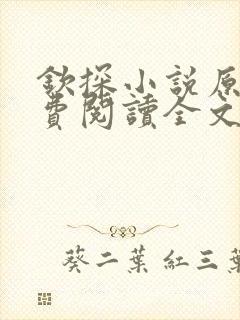 欽探小說原
費閱讀全文
葵二葉 紅三葉